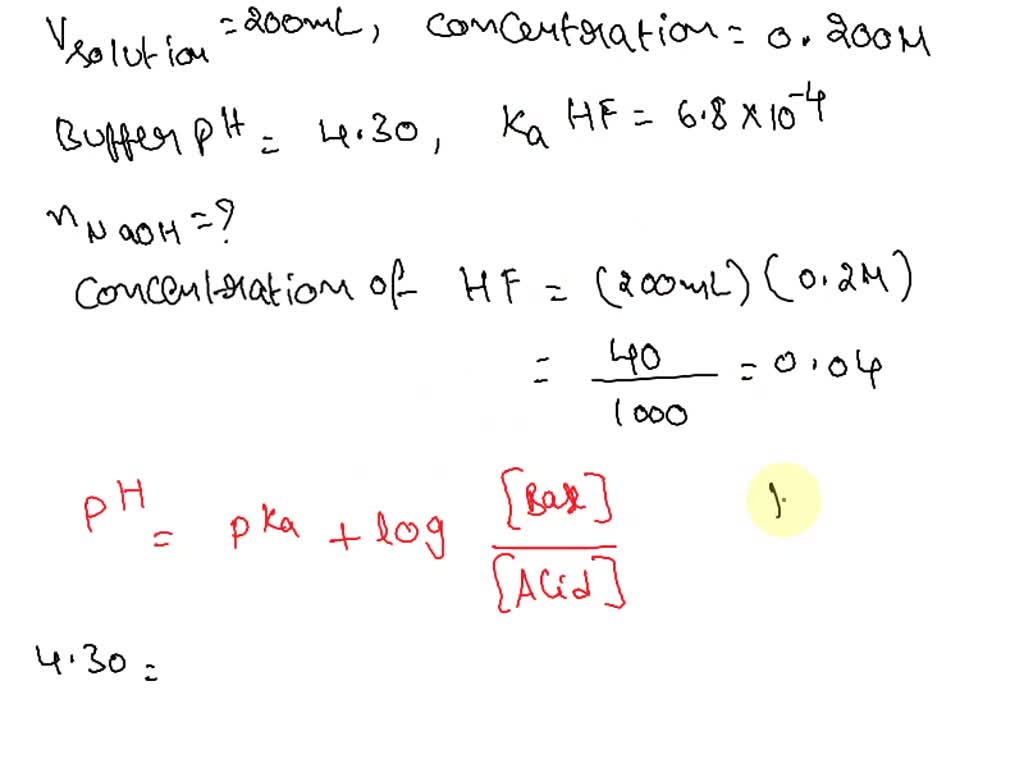 Vsolution = 200mL, Concentration = 0.200M
Buffer pH = 4.30, Ka HF = 6.8 × 10⁻⁴
nNaOH = ?
Concentration of HF = (200mL) (0.2M)
= 40/1000 = 0.04
pH = pKa + log [Base]/[Acid]
4.30 =